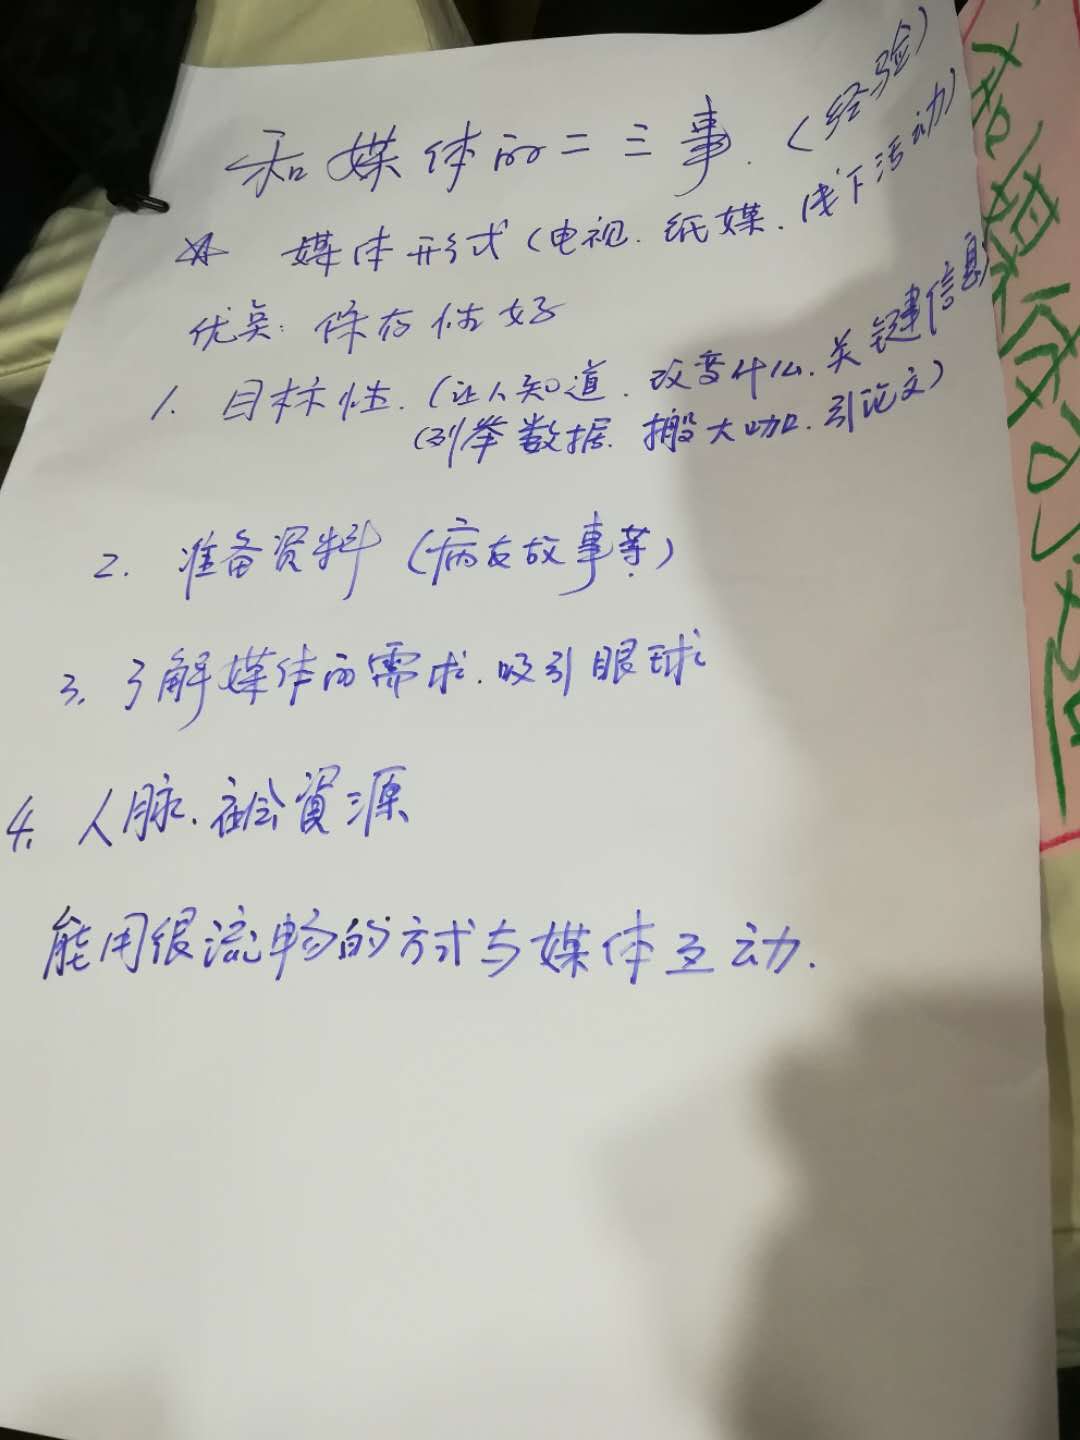 和媒体的二三事.(经验)
☆ 媒体形式(电视.纸媒.线下活动)
优点:保存性好
1. 目标性.(让人知道.改变什么.关键信息)
(列举数据.搬大咖.引论文)
2. 准备资料(病友故事等)
3. 了解媒体的需求.吸引眼球
4. 人脉.社会資源
能用很流畅的方式与媒体互动.